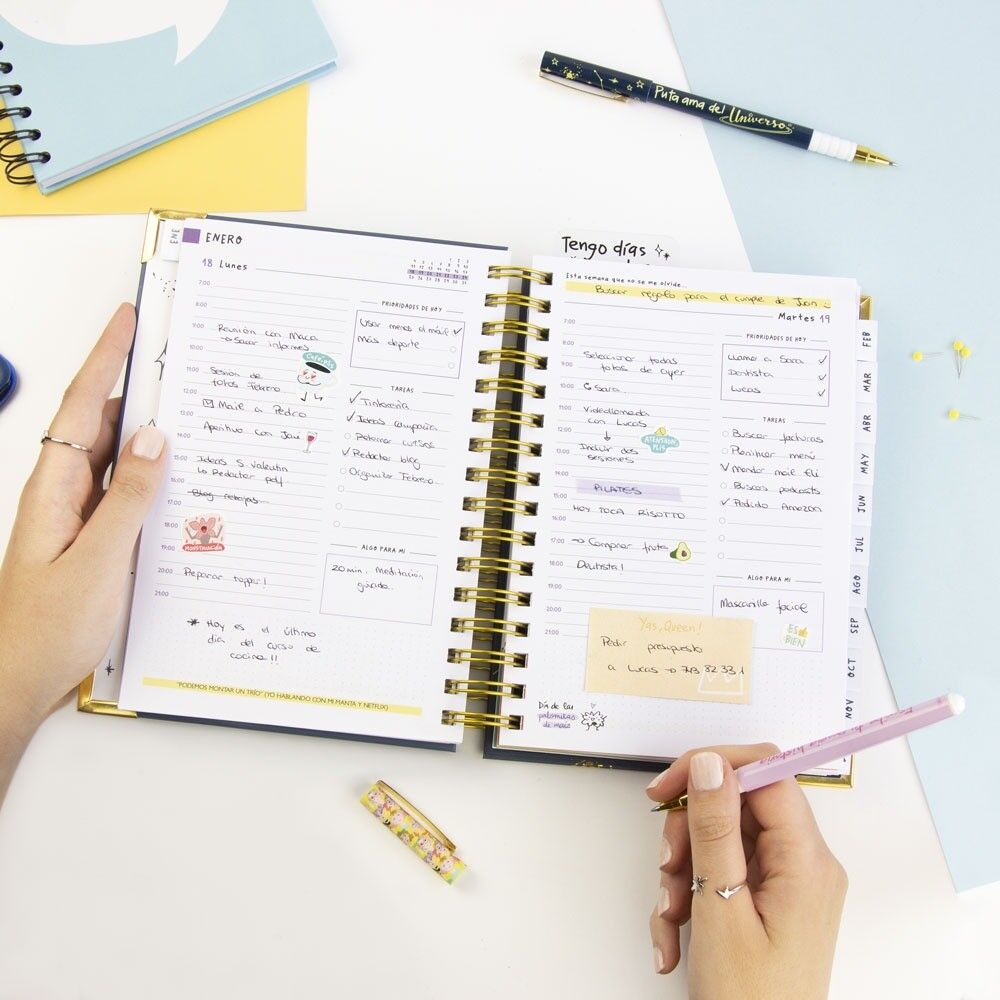 Puta ama del
Universo
Tengo días
ENERO
18 Lunes
7:00
8:00
9:00
Reunión con Maca
→ Sacar informes
10:00
Cafeííísss
11:00
Sesión de
fotos Febrero
12:00
Mail a Pedro
13:00
Aperitivo con Javi
14:00
15:00
Ideas S. Valentín
16:00
Lo Redactar pdf
17:00
Blog rebajas
18:00
MONSTRUACIÓN
19:00
20:00
Preparar tupper!
21:00
PRIORIDADES DE HOY
Usar menos el móvil ✓
Más deporte
TAREAS
✓ Tintorería
✓ Ideas campaña
Retomar cursos
✓ Redactar blog
Organizar Febrero
ALGO PARA MI
20 min. meditación
guiada.
* Hoy es el último
día del curso de
cocina!!
"PODEMOS MONTAR UN TRÍO" (YO HABLANDO CON MI MANTA Y NETFLIX)
Esta semana que no se me olvide...
Buscar regalo para el cumple de Juan
Martes 19
7:00
8:00
9:00
Seleccionar todas
fotos de ayer
10:00
Sara
11:00
Videollamada
con Lucas
12:00
13:00
Incluir dos
sesiones
14:00
15:00
PILATES
16:00
HOY TOCA RISOTTO
17:00
→ Comprar fruta
18:00
Dentista!
19:00
20:00
21:00
PRIORIDADES DE HOY
Llamar a Sara ✓
Dentista ✓
Lucas ✓
TAREAS
Buscar facturas
Planificar menú
✓ Mandar mail Eli
Buscar podcasts
✓ Pedido Amazon
ALGO PARA MI
Mascarilla facial
ES
BIEN
Yas, Queen!
Pedir presupuesto
a Lucas → 743 82 33 1
Día de las
palomitas
de maíz
FEB
MAR
ABR
MAY
JUN
JUL
AGO
SEP
OCT
NOV